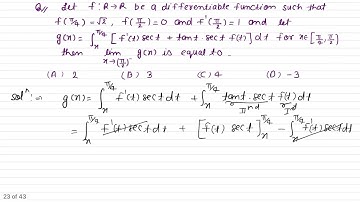 Q// Let f: R→R be a differentiable function such that
f(π/4) = √2, f(π/2) = 0 and f'(π/2) = 1 and let
g(x) = ∫_x^{π/4} [f'(t) sec t + tan t · sec t f(t)] dt for x ∈ [π/4, π/2)
then lim_{x→(π/2)⁻} g(x) is equal to -
(A) 2 (B) 3 (C) 4 (D) -3
Solⁿ :⇒ g(x) = ∫_x^{π/4} f'(t) sec t dt + ∫_x^{π/4} tan t · sec t f(t) dt
IInd Ist
= ∫_x^{π/4} f'(t) sec t dt + [f(t) sec t]_x^{π/4} - ∫_x^{π/4} f'(t) sec t dt
23 of 43